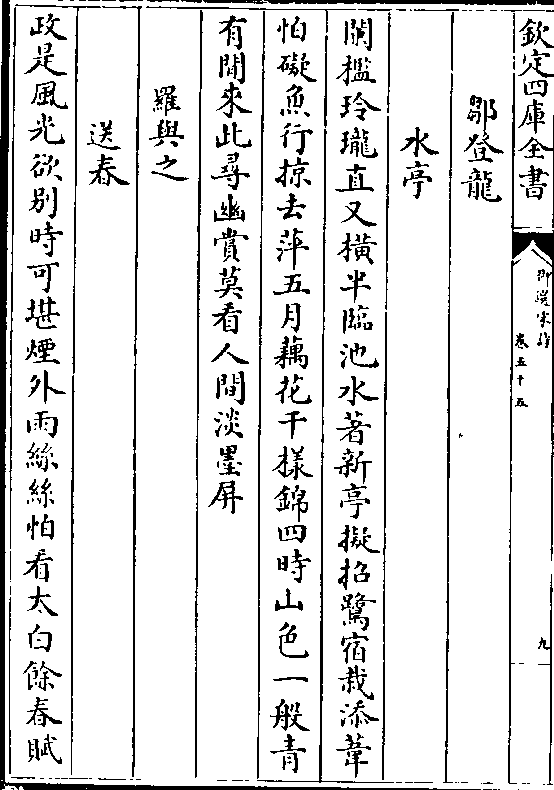 欽定四庫全書
御選宋詩
卷五十五
九
鄒登龍
水亭
闌檻玲瓏直又橫半臨池水著新亭擬招鷺宿栽添葦
怕礙魚行掠去萍五月藕花千様錦四時山色一般青
有閒來此尋幽賞莫看人間淡墨屏
羅與之
送春
政是風光欲别時可堪煙外雨絲絲怕看太白餘春賦